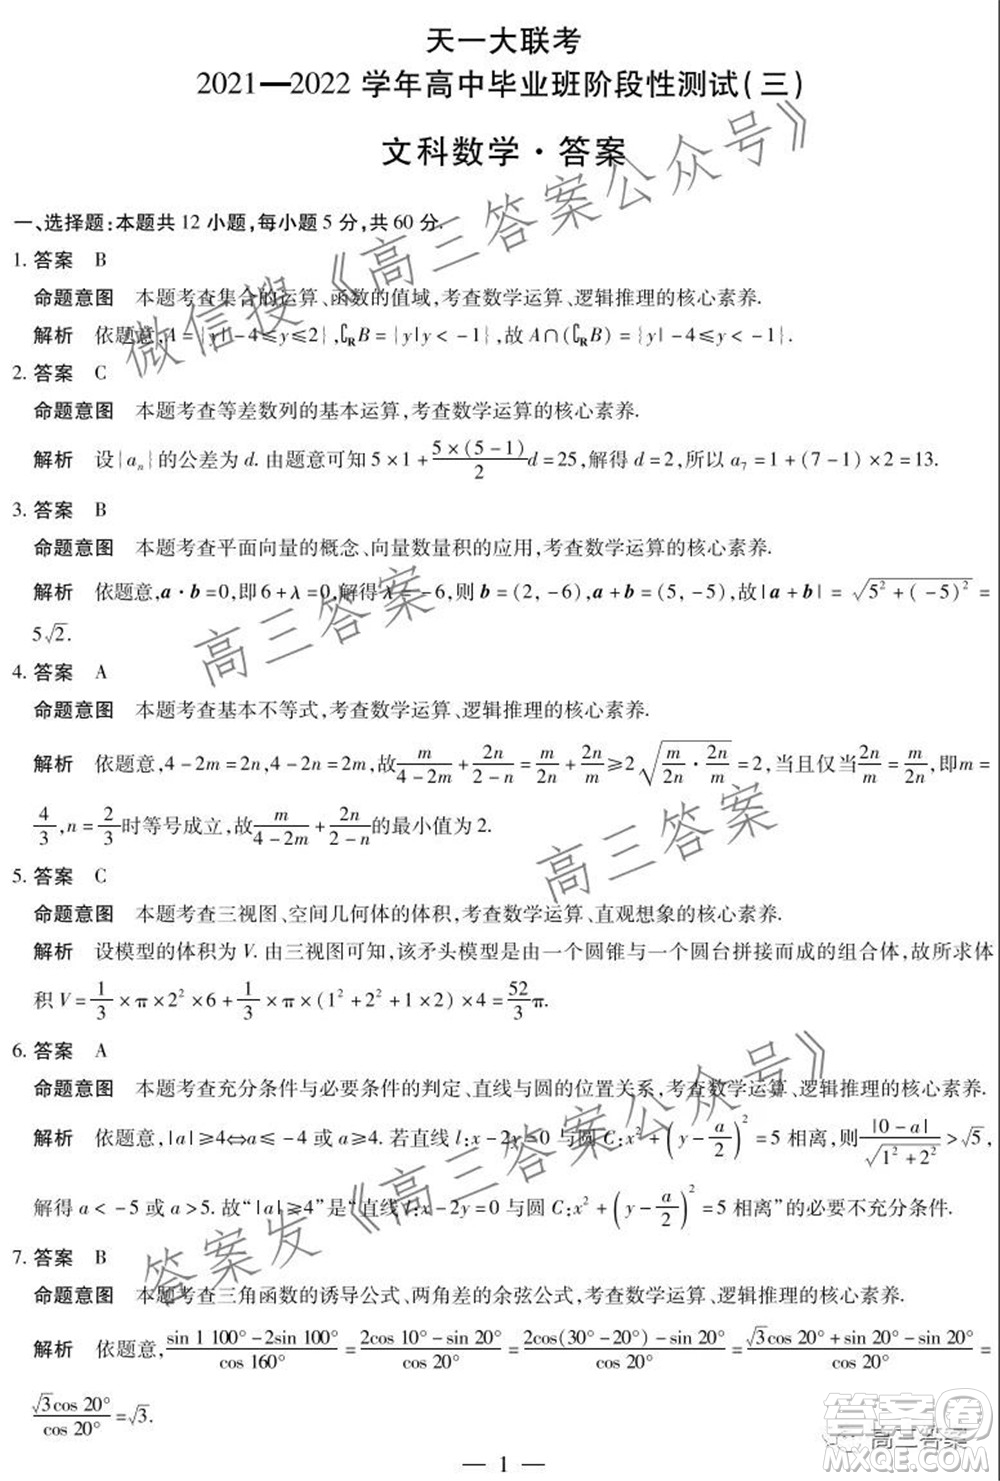 天一大联考
2021—2022 学年高中毕业班阶段性测试(三)
文科数学·答案
一、选择题:本题共 12 小题,每小题 5 分,共 60 分.
1. 答案 B
命题意图 本题考查集合的运算、函数的值域,考查数学运算、逻辑推理的核心素养.
解析 依题意,A={y|-4≤y≤2},∁RB={y|y<-1},故 A∩(∁RB)={y|-4≤y<-1}.
2. 答案 C
命题意图 本题考查等差数列的基本运算,考查数学运算的核心素养.
解析 设{aₙ}的公差为 d. 由题意可知 5×1+\frac{5×(5-1)}{2}d=25,解得 d=2,所以 a₇=1+(7-1)×2=13.
3. 答案 B
命题意图 本题考查平面向量的概念、向量数量积的应用,考查数学运算的核心素养.
解析 依题意,a·b=0,即 6+λ=0,解得 λ=-6,则 b=(2,-6),a+b=(5,-5),故|a+b|=\sqrt{5²+(-5)²}=
5√2.
4. 答案 A
命题意图 本题考查基本不等式,考查数学运算、逻辑推理的核心素养.
解析 依题意,4-2m=2n,4-2n=2m,故\frac{m}{4-2m}+\frac{2n}{2-n}=\frac{m}{2n}+\frac{2n}{m}≥2\sqrt{\frac{m}{2n}·\frac{2n}{m}}=2,当且仅当\frac{2n}{m}=\frac{m}{2n},即 m=
\frac{4}{3},n=\frac{2}{3}时等号成立,故\frac{m}{4-2m}+\frac{2n}{2-n}的最小值为 2.
5. 答案 C
命题意图 本题考查三视图、空间几何体的体积,考查数学运算、直观想象的核心素养.
解析 设模型的体积为 V. 由三视图可知,该矛头模型是由一个圆锥与一个圆台拼接而成的组合体,故所求体
积 V=\frac{1}{3}×π×2²×6+\frac{1}{3}×π×(1²+2²+1×2)×4=\frac{52}{3}π.
6. 答案 A
命题意图 本题考查充分条件与必要条件的判定、直线与圆的位置关系,考查数学运算、逻辑推理的核心素养.
解析 依题意,|a|≥4⇔a≤-4 或 a≥4. 若直线 l:x-2y=0 与圆 C:x²+(y-\frac{a}{2})²=5 相离,则\frac{|0-a|}{\sqrt{1²+2²}}>√5,
解得 a<-5 或 a>5. 故“|a|≥4”是“直线 l:x-2y=0 与圆 C:x²+(y-\frac{a}{2})²=5 相离”的必要不充分条件.
7. 答案 B
命题意图 本题考查三角函数的诱导公式、两角差的余弦公式,考查数学运算、逻辑推理的核心素养.
解析 依题意,\frac{sin 1 100°-2sin 100°}{cos 160°}=\frac{2cos 10°-sin 20°}{cos 20°}=\frac{2cos(30°-20°)-sin 20°}{cos 20°}=\frac{√3cos 20°+sin 20°-sin 20°}{cos 20°}=
\frac{√3cos 20°}{cos 20°}=√3.
— 1 —
微信搜《高三答案公众号》
高三答案
高三答案
答案发《高三答案公众号》
高三答案
答案圈
MXQE.COM